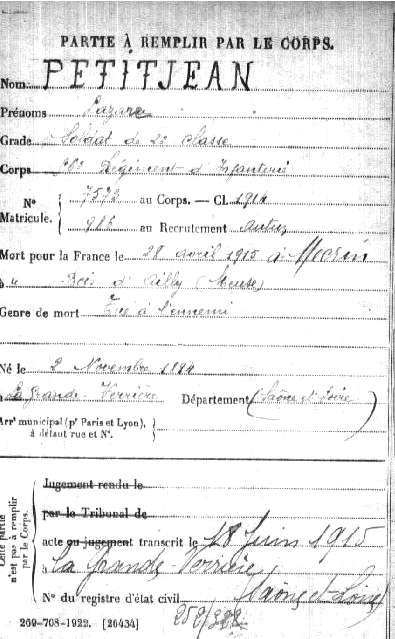 PARTIE À REMPLIR PAR LE CORPS.
Nom PETITJEAN
Prénoms Lazare
Grade Soldat de 2e classe
Corps Régiment d'Infanterie
No Matricule. { 7572 au Corps. — Cl. 1914
au Recrutement Autun
Mort pour la France le 28 avril 1915 à
à Bois d'Ailly (Meuse)
Genre de mort Tué à l'ennemi
Né le 2 Novembre
à La Grande Verrière Département (Saône et Loire)
Arrt municipal (pr Paris et Lyon),
à défaut rue et No.
Cette partie n'est pas à remplir par le Corps.
Jugement rendu le
par le Tribunal de
acte ou jugement transcrit le 18 Juin 1915
à La Grande Verrière
No du registre d'état civil Saône et Loire
269-708-1922. [26434]